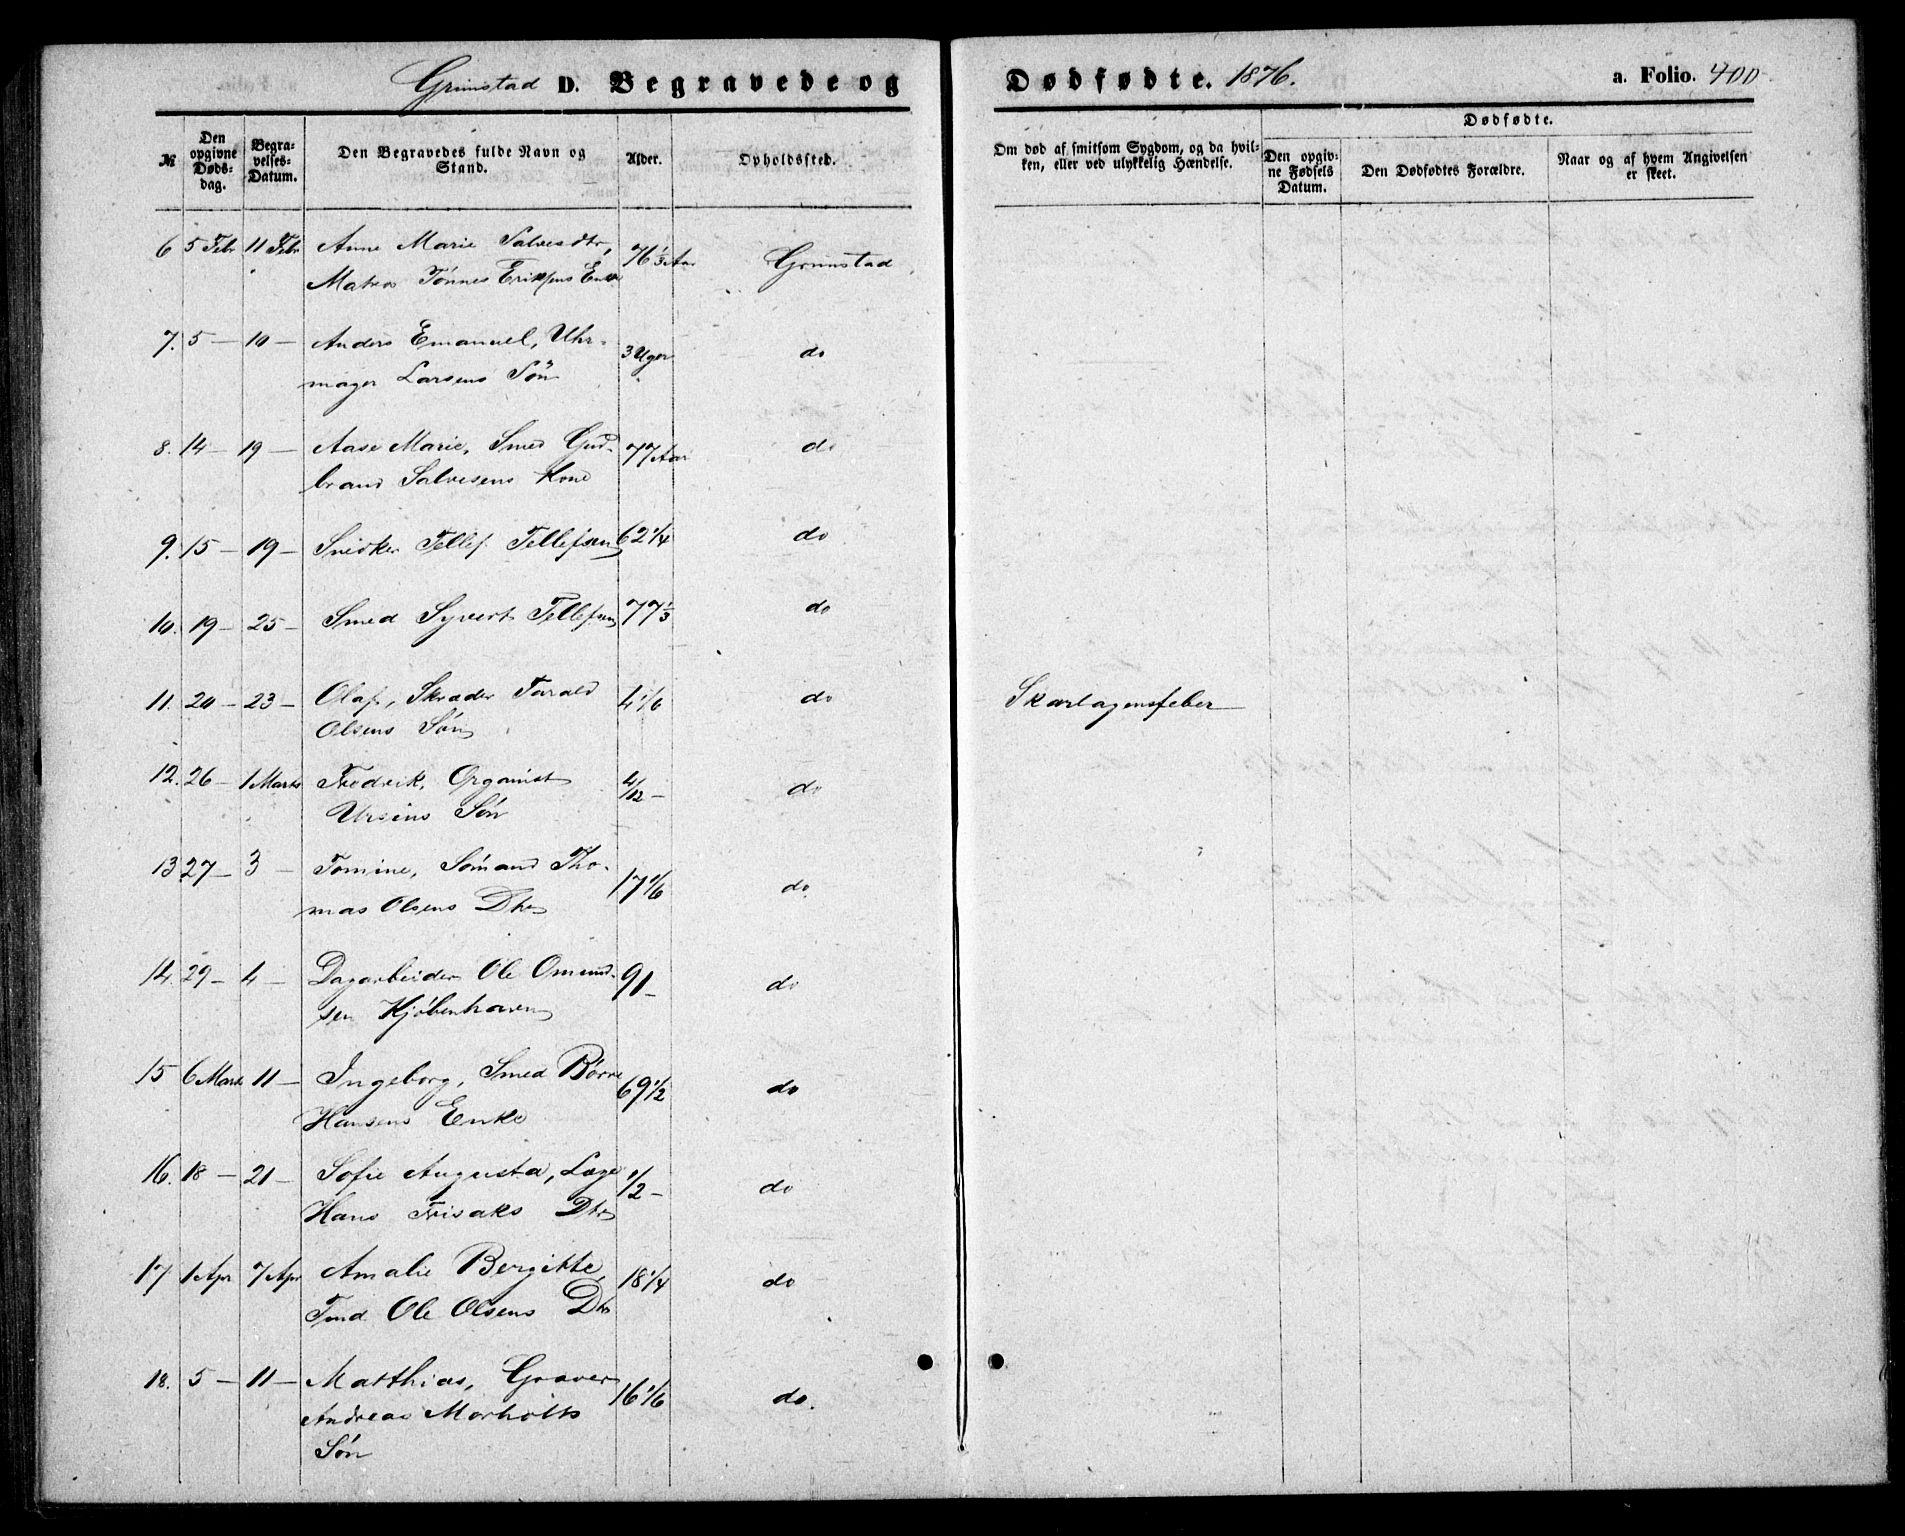 Grimstad D. Begravede og Dødfødte. 1876. a. Folio. 400.
Dødfødte.
№ Den opgivne Dødsdag. Begravelses-Datum. Den Begravedes fulde Navn og Stand. Alder. Opholdssted. Om død af smitsom Sygdom, og da hvilken, eller ved ulykkelig Hændelse. Den opgivne Fødsels Datum. Den Dødfødtes Forældre. Naar og af hvem Angivelsen er skeet.
6 5 Febr 11 Febr Anne Marie Salvesdtr, 76 1/3 Aar Grimstad
Matros Tønnes Eriksens Enke
7. 5 — 10 — Anders Emanuel, Uhr- 3 Uger do
mager Larsens Søn
8. 14 — 19 — Aase Marie, Smed Gud- 77 Aar do
brand Salvesens Kone
9. 15 — 19 — Snedker Tellef Tellefsen 62 1/4 do
10. 19 — 25 — Smed Syvert Tellefsen 77 1/3 do
11. 20 — 23 — Olaf, Skræder Tarald 4 1/6 do Skarlagensfeber
Olsens Søn
12. 26 — 1 Marts Fredrik, Organist 4/12 — do
Ursins Søn
13 27 — 3 — Tomine, Sømand Tho- 17 1/6 do.
mas Olsens Dtr
14. 29 — 4 — Dagarbeider Ole Omund- 91 — do
sen Kjøbenhavn
15 6 Marts 11 — Ingeborg, Smed Børre 69 1/2 do
Hansens Enke
16. 18 — 21 — Sofie Augusta, Læge 1/2 — do
Hans Frisaks Dtr
17 1 Apr 7 Apr Amalie Bergitte, 18 1/4 do
Tmd. Ole Olsens Dtr
18. 5 — 11 — Matthias, Graver 16 1/6 do.
Andreas Morholts
Søn